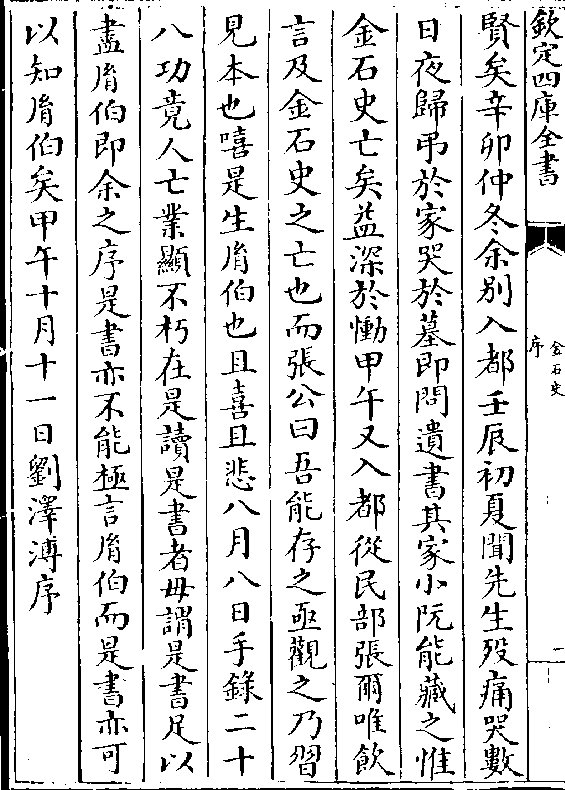 欽定四庫全書
金石史
序
二
賢矣辛卯仲冬余別入都壬辰初夏聞先生歿痛哭數
日夜歸弔於家哭於墓即問遺書其家小阮能藏之惟
金石史亡矣益深於慟甲午又入都從民部張爾唯飲
言及金石史之亡也而張公曰吾能存之亟觀之乃習
見本也嘻是生胤伯也且喜且悲八月八日手錄二十
八功竟人亡業顯不朽在是讀是書者毋謂是書足以
盡胤伯即余之序是書亦不能極言胤伯而是書亦可
以知胤伯矣甲午十月十一日劉澤溥序